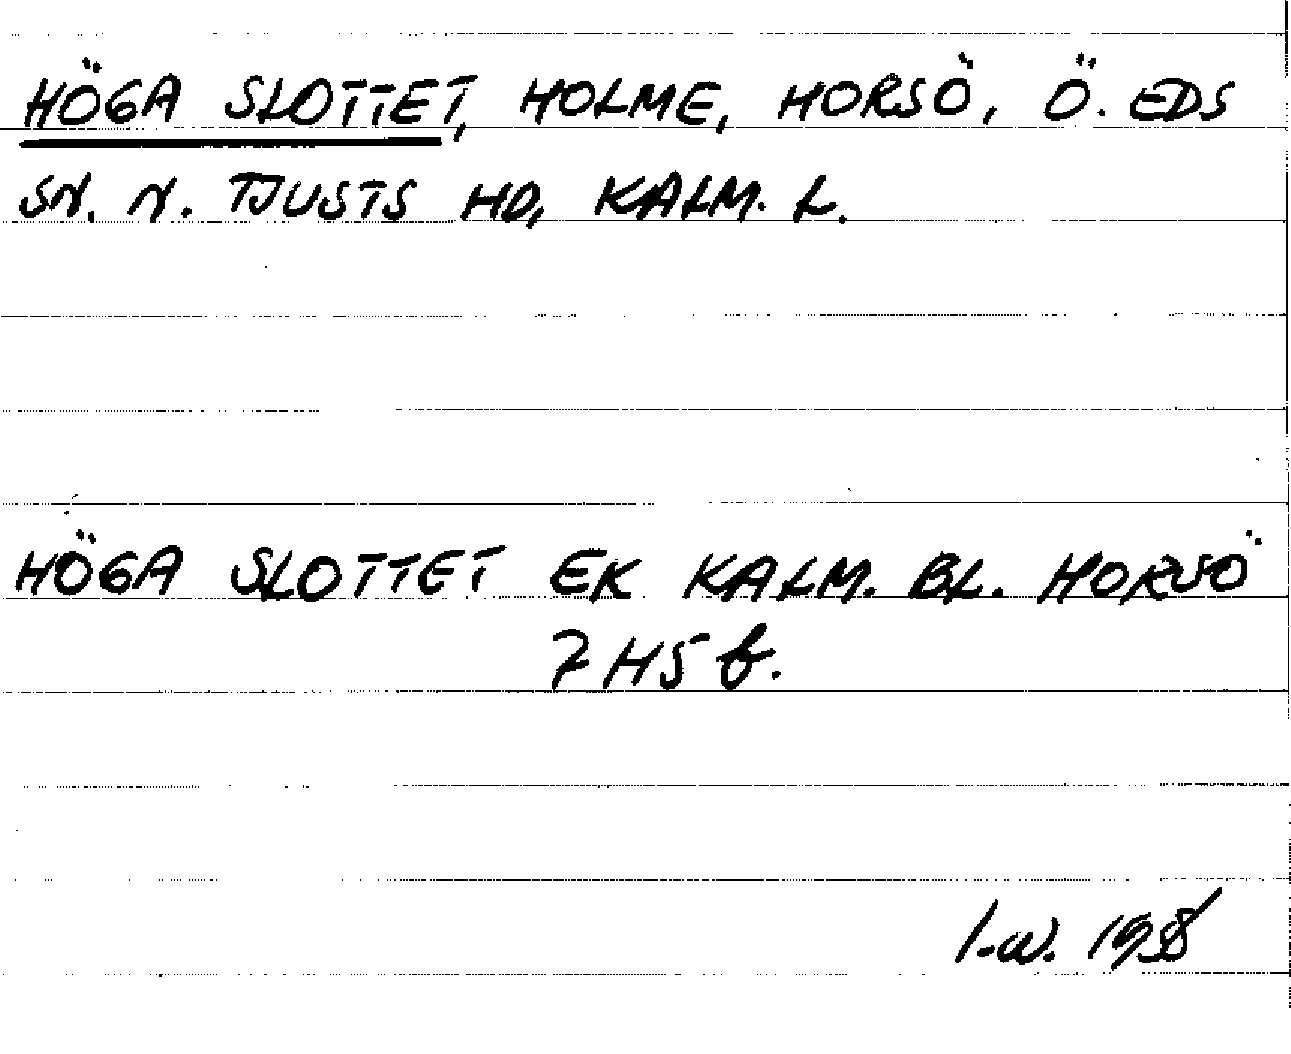 HÖGA SLOTTET, HOLME, HORSÖ, Ö. EDS
SN. N. TJUSTS HD, KALM. L.
HÖGA SLOTTET EK KALM. BL. HORSÖ
7H5b.
I.W.